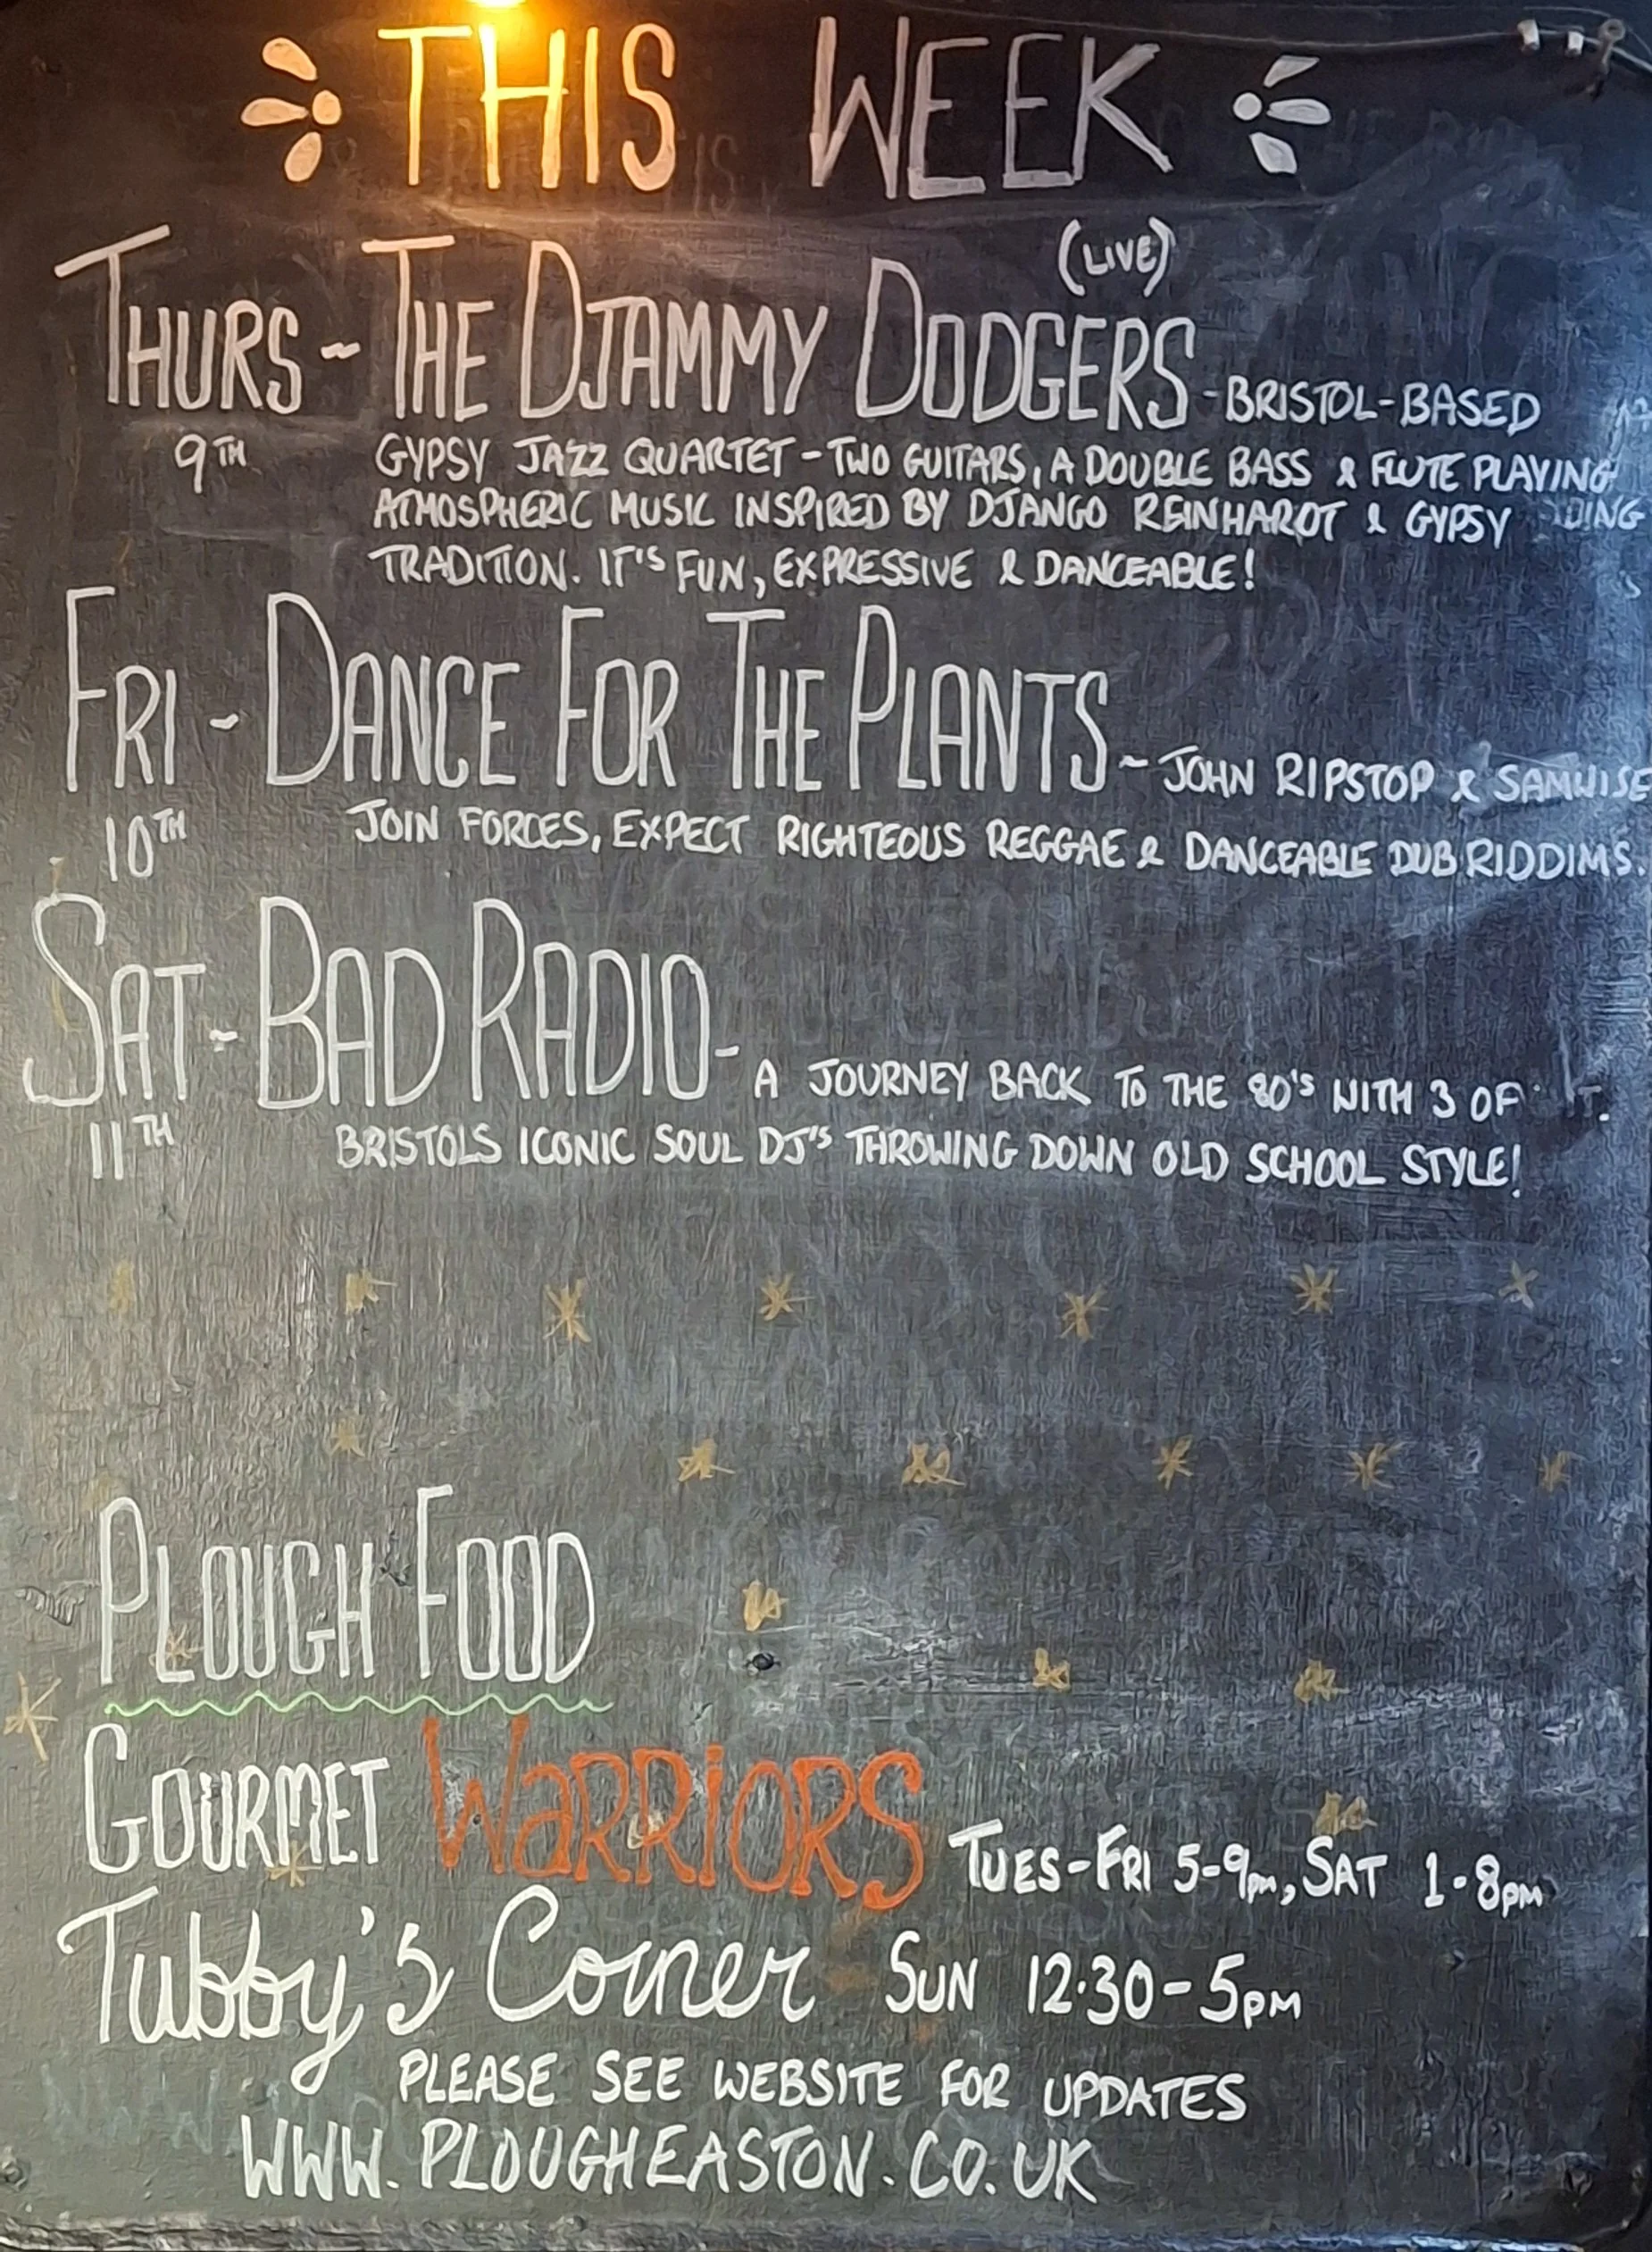 THIS WEEK
(LIVE)
THURS ~ THE DJAMMY DODGERS - BRISTOL-BASED
9TH GYPSY JAZZ QUARTET - TWO GUITARS, A DOUBLE BASS & FLUTE PLAYING
ATMOSPHERIC MUSIC INSPIRED BY DJANGO REINHARDT & GYPSY
TRADITION. IT'S FUN, EXPRESSIVE & DANCEABLE!
FRI ~ DANCE FOR THE PLANTS ~ JOHN RIPSTOP & SAMWISE
10TH JOIN FORCES, EXPECT RIGHTEOUS REGGAE & DANCEABLE DUB RIDDIMS.
SAT ~ BAD RADIO - A JOURNEY BACK TO THE 80'S WITH 3 OF
11TH BRISTOLS ICONIC SOUL DJ'S THROWING DOWN OLD SCHOOL STYLE!
PLOUGH FOOD
GOURMET WARRIORS TUES-FRI 5-9pm, SAT 1-8pm
Tubby's Corner SUN 12·30-5PM
PLEASE SEE WEBSITE FOR UPDATES
WWW.PLOUGHEASTON.CO.UK